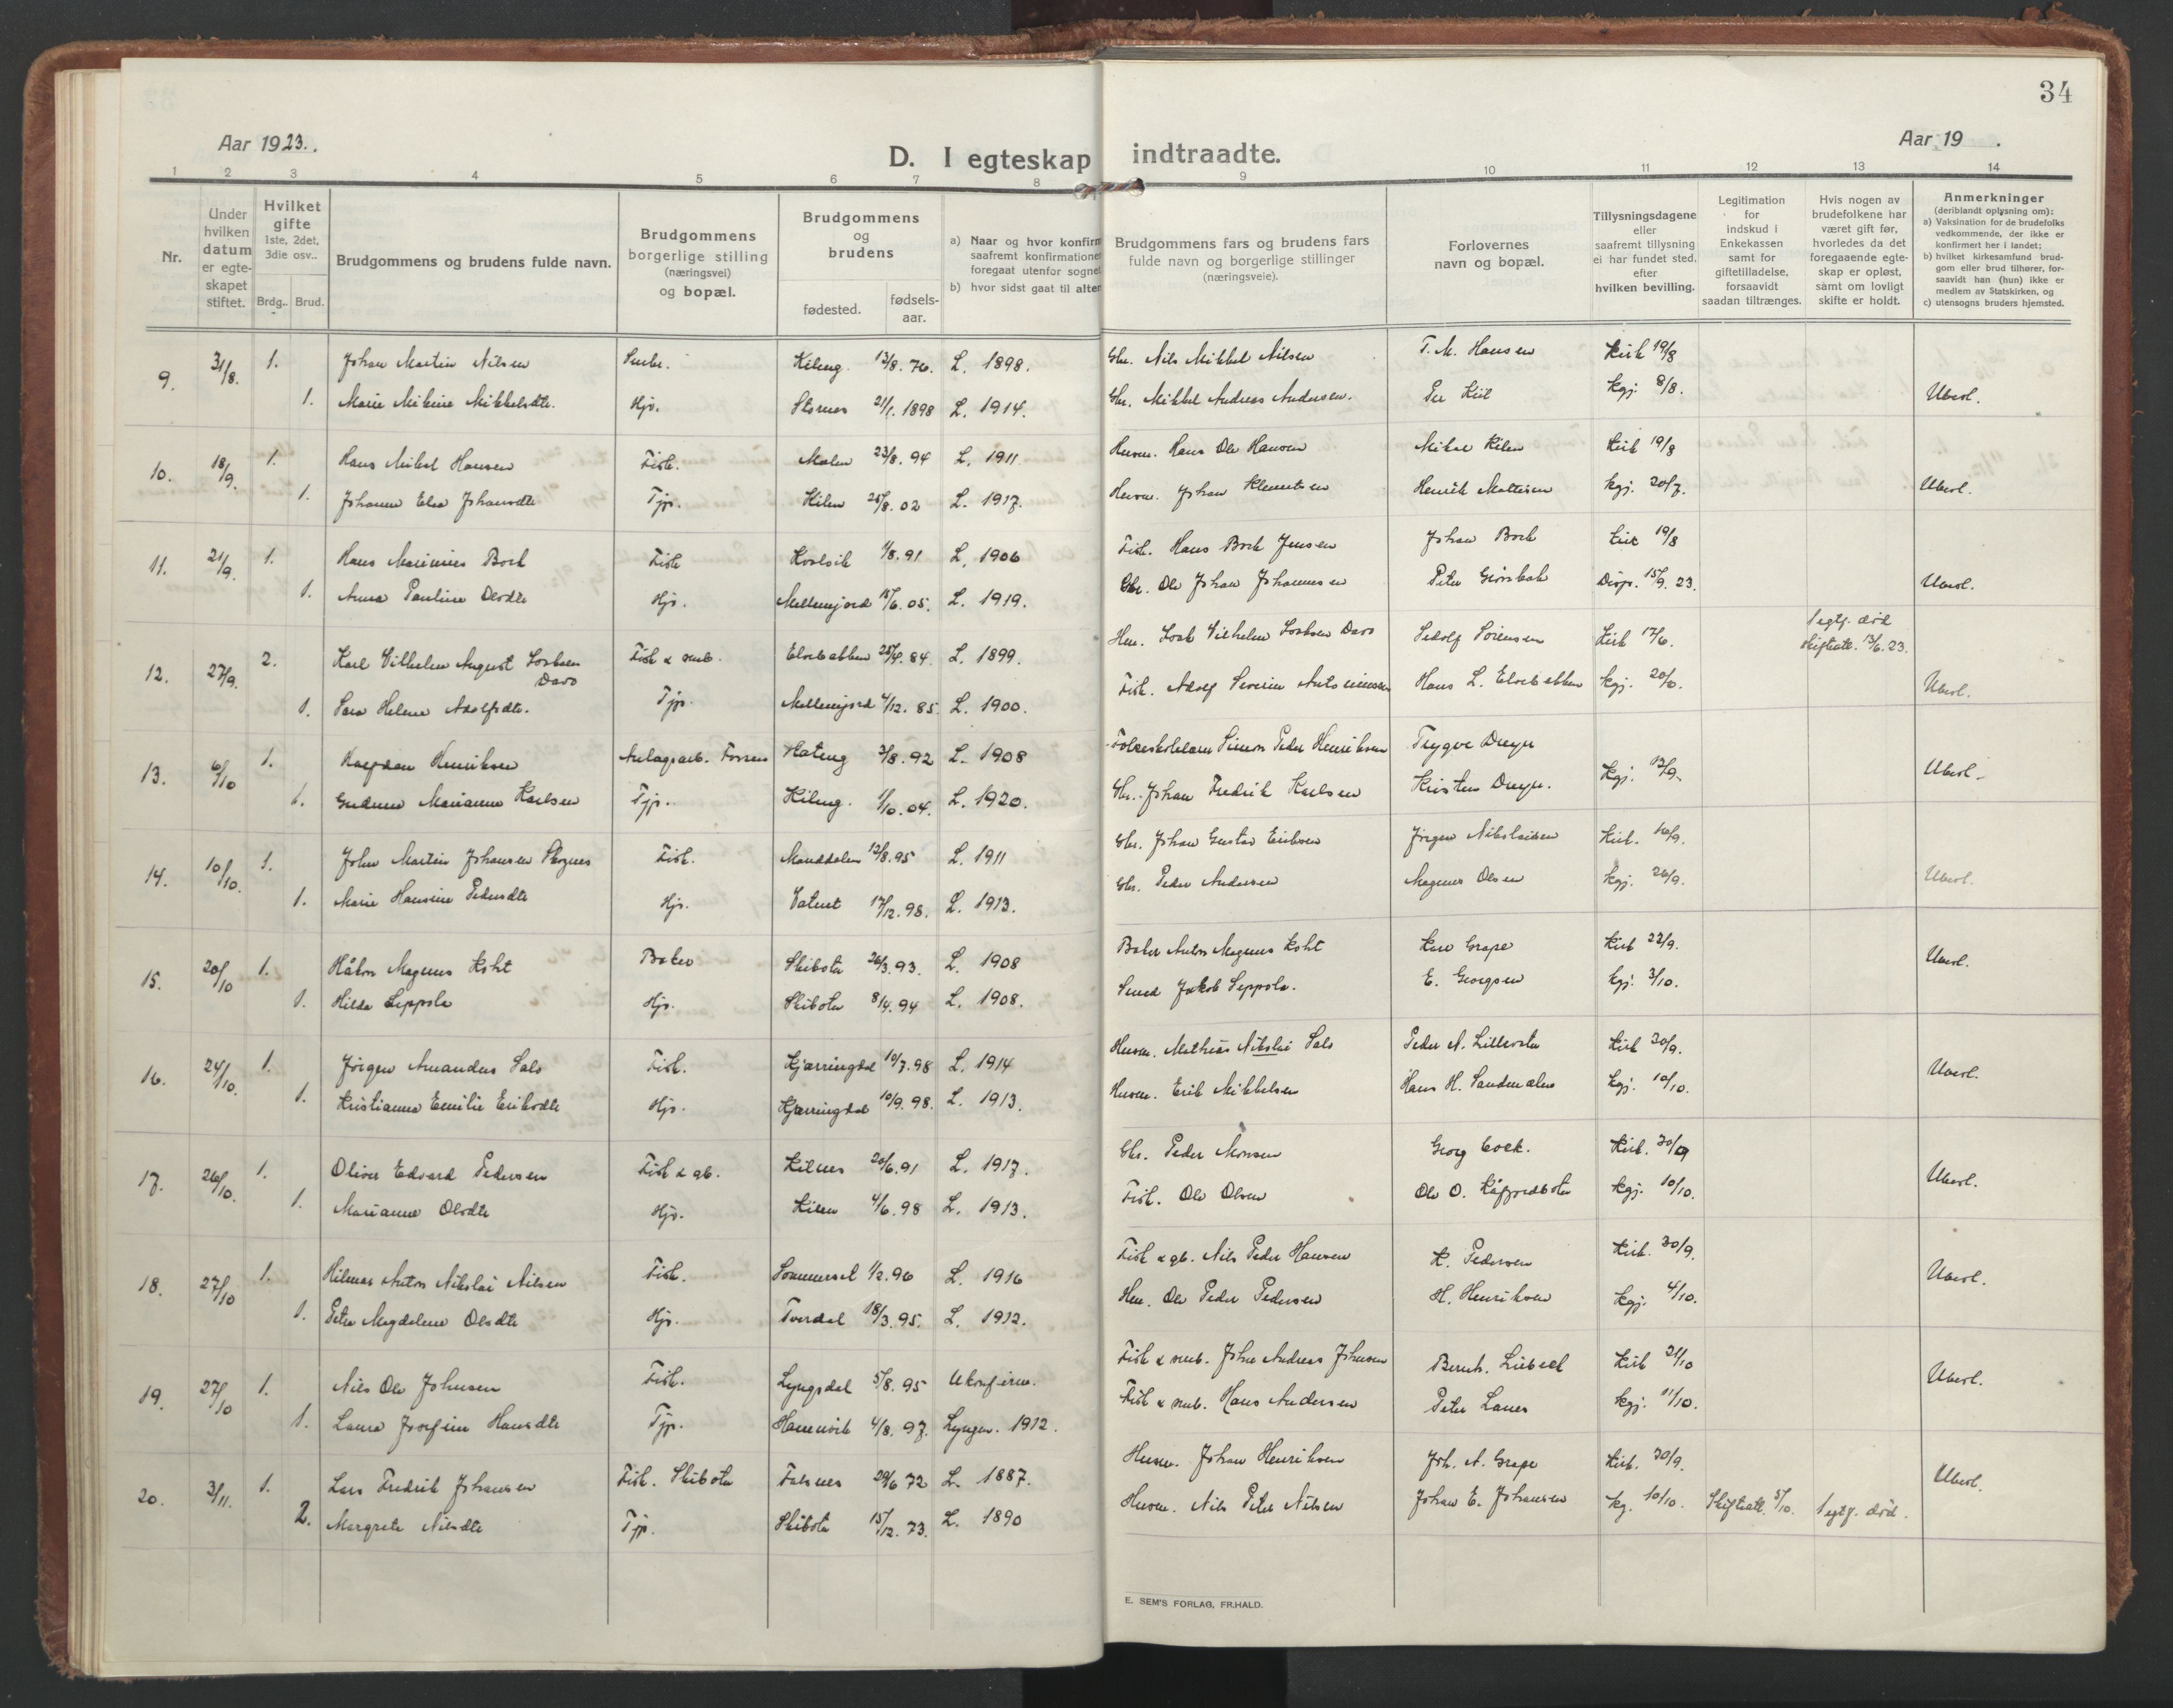 34
Aar 1923.
Aar 19 .
D. I egteskap indtraadte.
1 2 3 4 5 6 7 8 9 10 11 12 13 14
Nr.
Under hvilken datum er egteskapet stiftet.
Hvilket gifte 1ste, 2det, 3die osv..
Brdg.. Brud.
Brudgommens og brudens fulde navn.
Brudgommens borgerlige stilling (næringsvei) og bopæl.
Brudgommens og brudens
fødested. fødsels-aar.
a) Naar og hvor konfirm
saafremt konfirmationen
foregaat utenfor sognet
b) hvor sidst gaat til alter
Brudgommens fars og brudens fars fulde navn og borgerlige stillinger (næringsveie).
Forlovernes navn og bopæl.
Tillysningsdagene eller saafremt tillysning ei har fundet sted, efter hvilken bevilling.
Legitimation for indskud i Enkekassen samt for giftetilladelse, forsaavidt saadan tiltrænges.
Hvis nogen av brudefolkene har været gift før, hvorledes da det foregaaende egteskap er opløst, samt om lovligt skifte er holdt.
Anmerkninger
(deriblandt oplysning om):
a) Vaksination for de brudefolks vedkommende, der ikke er konfirmert her i landet;
b) hvilket kirkesamfund brudgom eller brud tilhører, forsaavidt han (hun) ikke er medlem av Statskirken, og
c) utensogns bruders hjemsted.
9. 31/8. 1. Johan Martin Nilsen Kileng. 13/8. 76. L. 1898. Gbr. Nils Mikkel Nilsen T. M. Hansen Kirk 19/8
1. Marie Mikkelsdtr. Hjv. Stornes 21/1. 1898 L. 1914. Gbr. Mikkel Andreas Andersen. Per Kiil Kgj. 8/8. Uberl.
10. 18/9. 1. Hans Mikal Hansen Fisk. Malen 23/8. 94 L. 1911 Husm. Hans Ole Hansen Mikal Kilen Kirk 19/8
1. Johanne Elea Johansdtr Tjp. Kilen 25/8. 02 L. 1917. Husm. Johan Klemetsen Henrik Mathisen Kgj. 20/7. Uberl.
11. 21/9. 1. Hans Marinius Bork Fisk Kvalvik 1/8. 91 L. 1906 Fisk. Hans Bork Jensen Johan Bork Kirk 19/8
1. Anna Pauline Olsdtr Hjv. Mellemjord 15/6. 05. L. 1919. Gbr. Ole Johan Johannesen Peter Disp. 15/9. 23. Uberl.
12. 27/9. 2. Karl Vilhelm August Isaksen Davo Fisk & smb. Elvebakken 25/4. 84. L. 1899. Hm. Isak Vilhelm Isaksen Davo Sedolf Sørensen Kirk 17/6. 1 egtf. død Skifteatt. 13/6. 23.
1. Sara Helene Adolfsdtr. Tjp. Mellemjord 4/12. 85. L. 1900. Fisk. Adolf Severin Antoniussen Hans L. Elvebakken Kgj. 20/6. Uberl.
13. 6/10 1. Henriksen Anlagsarb. Hateng 3/8. 92 L. 1908 Folkeskolelærer Simon Peder Henriksen Trygve Dreyer Kgj. 13/9. Uberl.
1. Marianne Karlsen Tjp. Kileng. 1/10. 04. L. 1920. Gbr. Johan Fredrik Karlsen Kristen Dreyer.
14. 10/10. 1. John Martin Johansen Skognes Fisk. Manddalen 12/8. 95 L. 1911 Gbr. Johan Gustav Eriksen Jørgen Nikolaisen Kirk. 16/9.
1. Marie Hansine Pedersdtr Hjv. Vatnet 17/12. 98. L. 1913. Gbr. Peder Andersen Magnus Olsen Kgj. 26/9. Uberl.
15. 20/10 1. Håkon Magnus Koht Baker Skibotn 26/3. 93. L. 1908 Baker Anton Magnus Koht Karl Grape Kirk 22/9. Uberl.
1. Hilda Seppola Hjv. Skibotn 8/4. 94 L. 1908. Smed Jakob Seppola. E. Georgsen Kgj. 3/10.
16. 24/10. 1. Jørgen Amandus Salo Fisk. Kjærringdal 10/7. 98 L. 1914 Husm. Mathias Nikolai Salo Peder A. Lillevoln Kirk 30/9. Uberl.
1. Kristianna Emilie Eriksdtr Hjv. Kjærringdal 10/9. 98. L. 1913. Husm. Erik Mikkelsen Hans H. Sandmælen Kgj. 10/10.
17. 26/10. 1. Oliver Edvard Pedersen Fisk & gb. Kilnes 20/6. 91 L. 1917. Gbr. Peder Monsen Georg Cock. Kirk. 30/9
1. Marianne Olsdtr Hjv. Kilen 4/6. 98 L. 1913. Fisk. Ole Olsen Ole O. Kåfjordbotn Kgj. 10/10. Uberl.
18. 27/10 1. Hilmar Anton Nikolai Nilsen Fisk. Sommerset 1/2. 96 L. 1916 Fisk & gb. Nils Peder Hansen K. Pedersen Kirk. 30/9. Uberl.
1. Petra Magdalena Olsdtr Hjv. Tverdal 18/3. 95. L. 1912. Hm. Ole Peder Pedersen H. Henriksen Kgj. 4/10.
19. 27/10 1. Nils Ole Johnsen Fisk. Lyngsdal 5/8. 95 Ukonfirm. Fisk & smb. John Andreas Johnsen Bernh. Lübeck Kirk 21/10 Uberl.
1. Laura Josefine Hansdtr Tjp. Hamnvik 4/8. 97. Lyngen. 1912. Fisk & smb. Hans Andersen Peter Kgj. 11/10.
20. 3/11. 1. Lars Fredrik Johansen Fisk. Skibotn Falsnes 29/6 72 L. 1887. Husm. Johan Henriksen Joh. A. Grape Kirk. 30/9. Uberl.
2. Margrete Nilsdtr Tjp. Skibotn 15/12. 73. L. 1890 Husm. Nils Peter Nilsen Johan E. Johansen Kg. 10/10. Skifteatt. 5/10. 1 egtf. død.
E. SEM'S FORLAG, FR.HALD.